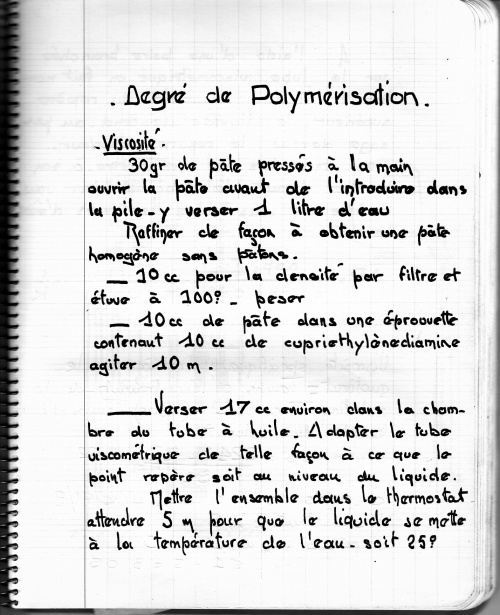 . Degré de Polymérisation.
- Viscosité.
30gr de pâte pressés à la main
ouvrir la pâte avant de l'introduire dans
la pile - y verser 1 litre d'eau
Raffiner de façon à obtenir une pâte
homogène sans pâtons.
— 10 cc pour la densité par filtre et
étuve à 100? - peser
— 10 cc de pâte dans une éprouvette
contenant 10 cc de cupriethylènediamine
agiter 10 m.
— Verser 17 cc environ dans la cham-
bre du tube à huile. Adapter le tube
viscométrique de telle façon à ce que le
point repère soit au niveau du liquide.
Mettre l'ensemble dans le thermostat
attendre 5 m pour que le liquide se mette
à la température de l'eau - soit 25?